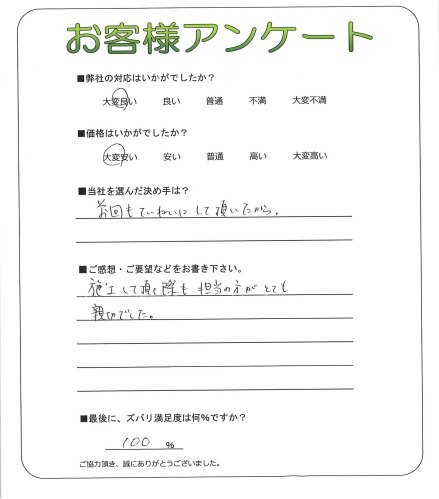 お客様アンケート
■弊社の対応はいかがでしたか?
大変良い 良い 普通 不満 大変不満
■価格はいかがでしたか?
大変安い 安い 普通 高い 大変高い
■当社を選んだ決め手は?
前回もていねいにして頂いたから。
■ご感想・ご要望などをお書き下さい。
施工して頂く際も担当の方がとても
親切でした。
■最後に、ズバリ満足度は何%ですか?
100 %
ご協力頂き、誠にありがとうございました。